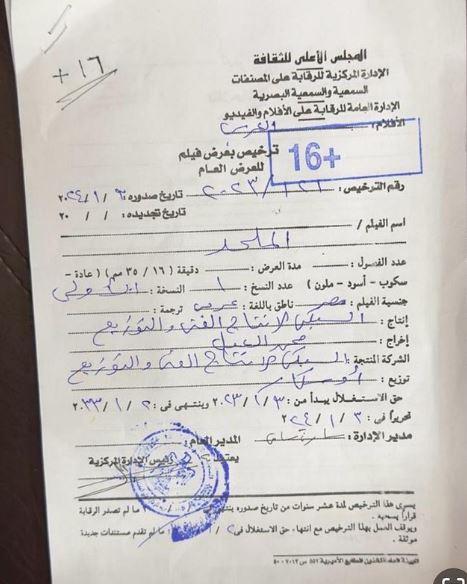 +١٦
المجلس الأعلى للثقافة
الإدارة المركزية للرقابة على المصنفات
السمعية والسمعية البصرية
الإدارة العامة للرقابة على الأفلام والفيديو
الأفلام: العربية
16+
ترخيص بعرض فيلم
للعرض العام
رقم الترخيص: ١٢١ / ٢٠٢٣ تاريخ صدوره ٣ / ١ / ٢٠٢٤
تاريخ تجديده: / / ٢٠
اسم الفيلم /
الملحد
عدد الفصول: مدة العرض: دقيقة ( ١٦ / ٣٥ مم ) ( عادة -
سكوب - أسود - ملون ) عدد النسخ: ١ النسخة: الأولى
جنسية الفيلم: مصر ناطق باللغة: عربى ترجمة:
إنتاج: السبكى لإنتاج الفنى والتوزيع
إخراج: محمد العدل
الشركة المنتجة: السبكى لإنتاج الفنى والتوزيع
توزيع: أوسكار
حق الاستغلال يبدأ من: ٣ / ١ / ٢٠٢٣ وينتهى فى: ٢ / ١ / ٢٠٣٣
تحريرًا فى: ٣ / ١ / ٢٠٢٤
مدير الإدارة: المدير العام:
يعتمد
رئيس الإدارة المركزية
يسرى هذا الترخيص لمدة عشر سنوات من تاريخ صدوره ما لم تصدر الرقابة
قرارًا بسحبه.
ويوقف العمل بهذا الترخيص مع انتهاء حق الاستغلال فى ما لم تقدم مستندات جديدة
موثقة.